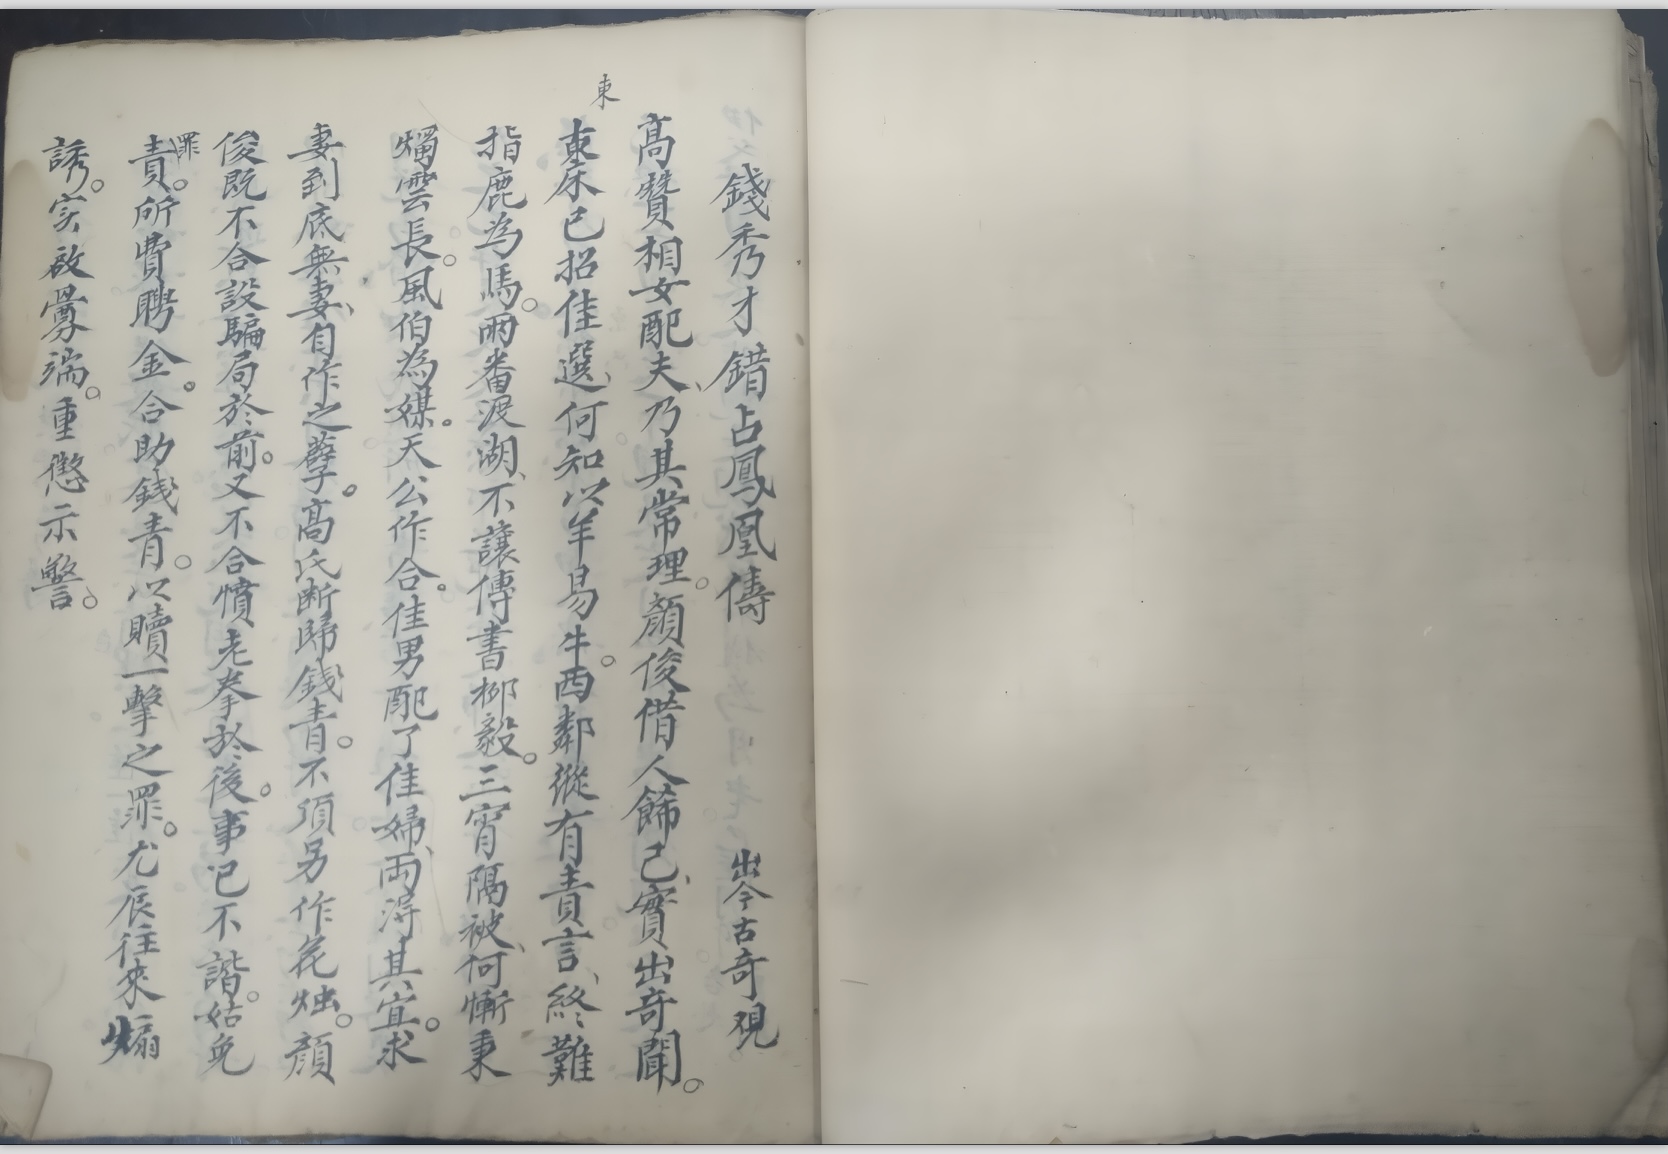 錢秀才錯占鳳凰儔　出今古奇观
高贊相女配夫、乃其常理。顏俊借人餙己、實出奇聞。
東
東床已招佳選、何知以羊易牛。西鄰縱有責言、終難
指鹿為馬。兩番渡湖、不讓傳書柳毅。三宵隔被、何慚秉
燭雲長。風伯為媒。天公作合。佳男配了佳婦、両淂其宜。求
妻到底無妻、自作之孽。高氏断歸錢青。不須另作花烛。顏
俊既不合設騙局於前。又不合憤老拳於後。事已不諧。姑免
罪
責。所費聘金。合助錢青。以贖一擊之罪。尤辰往來煽
誘。实啟釁端。重懲示警。